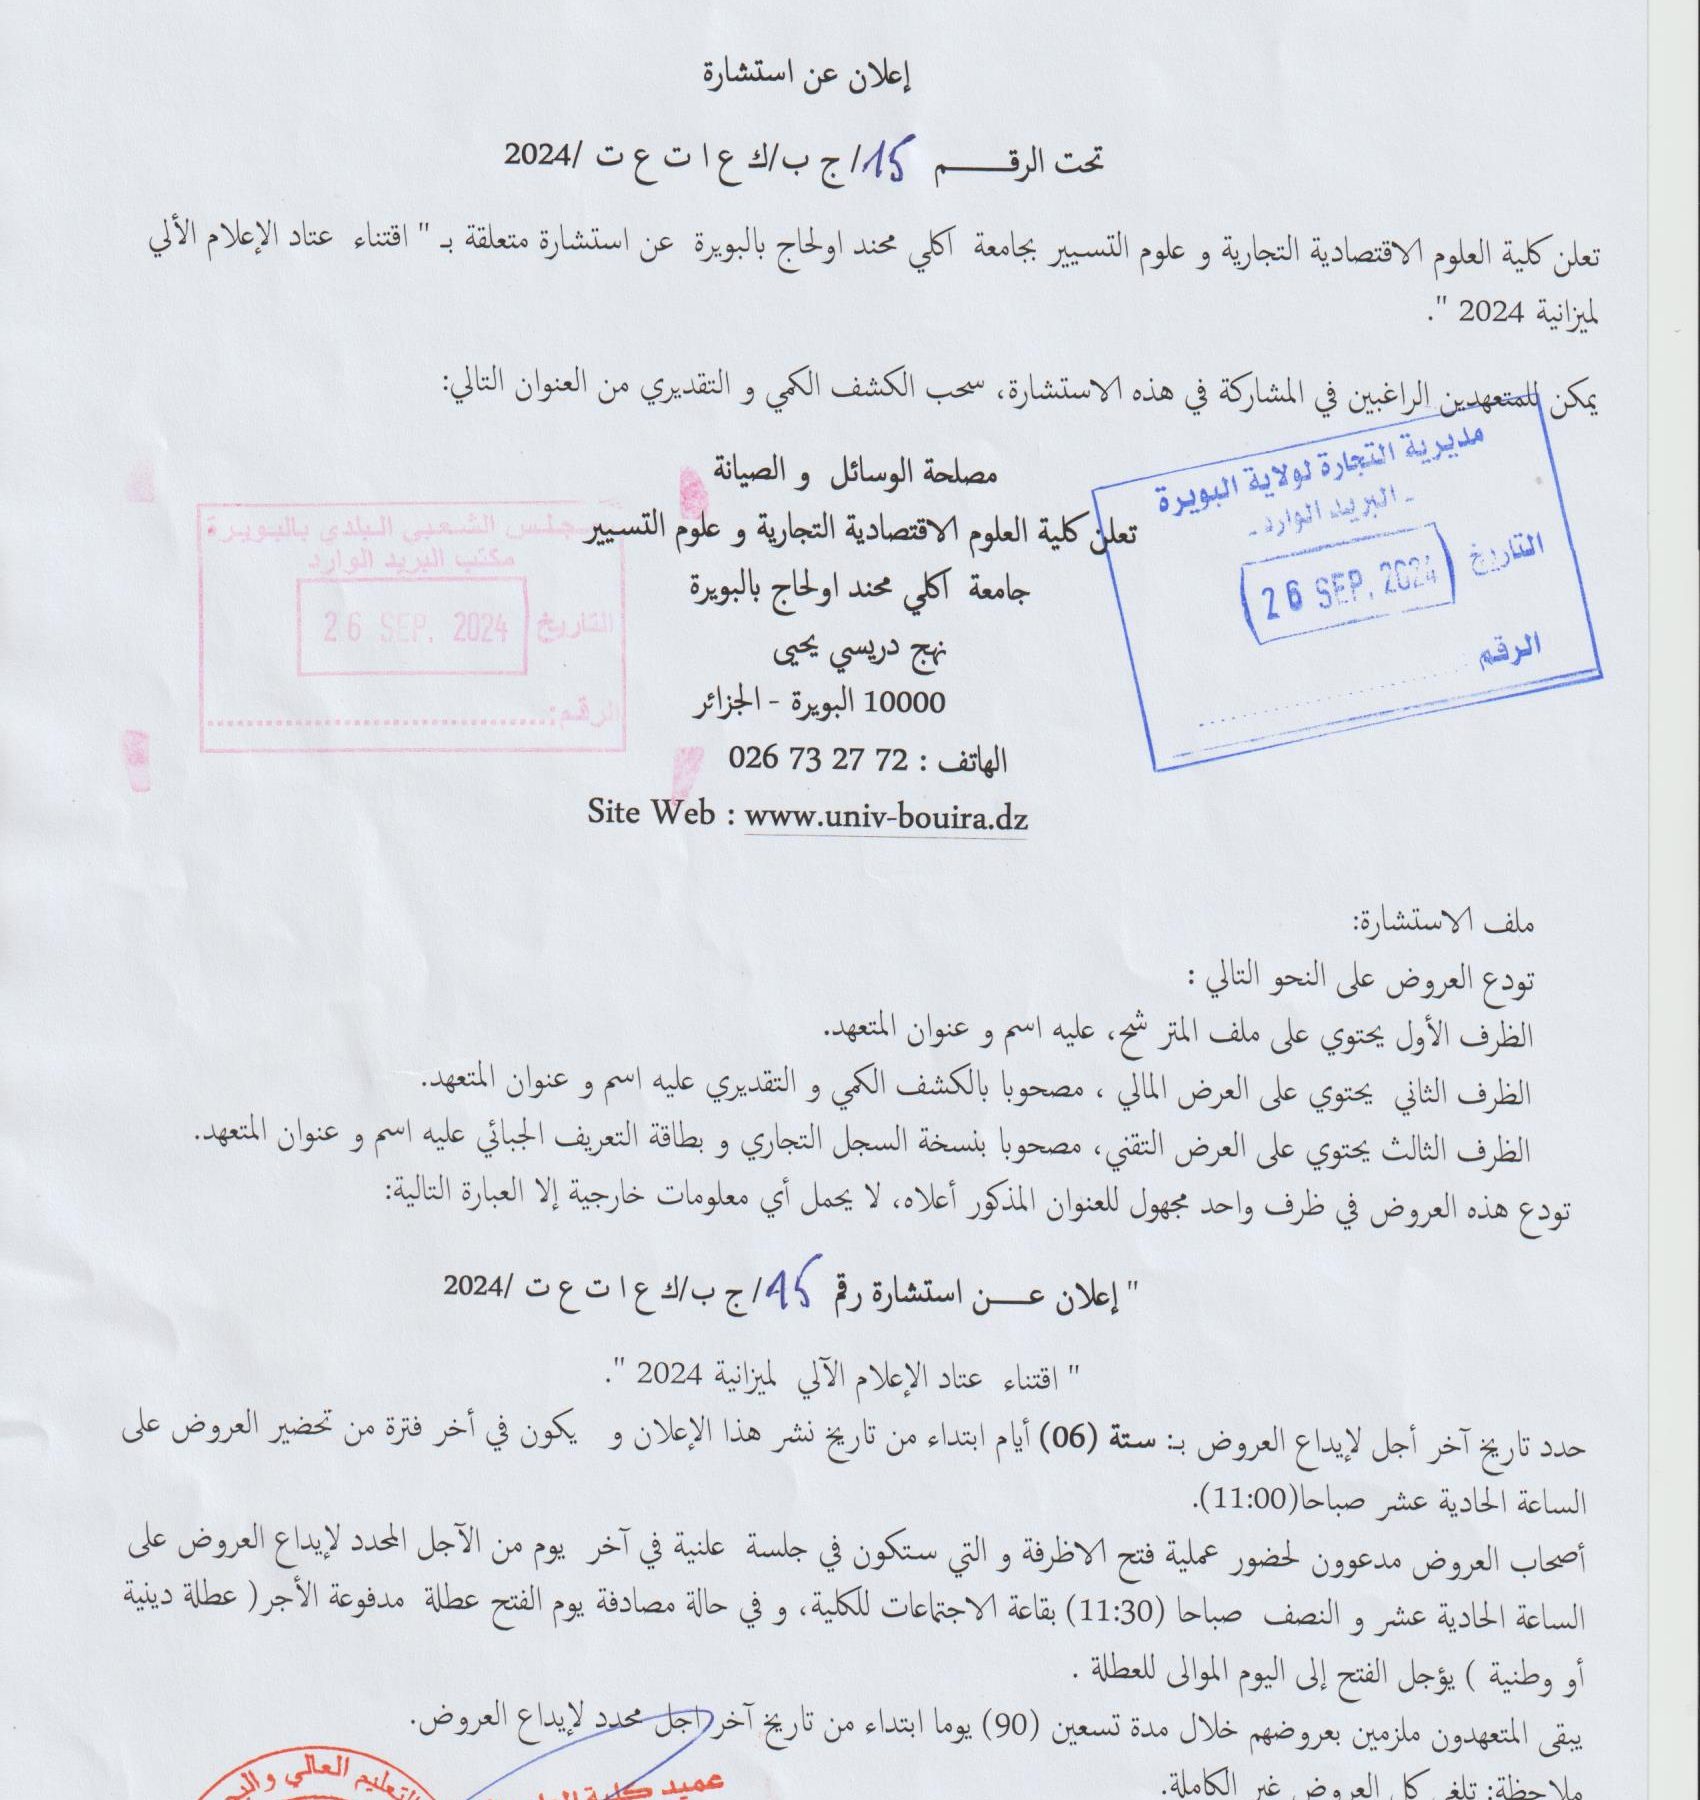 إعلان عن استشارة
تحت الرقـــــــم 15/ ج ب/ك ع ا ت ع ت /2024
تعلن كلية العلوم الاقتصادية التجارية و علوم التسيير بجامعة اكلي محند اولحاج بالبويرة عن استشارة متعلقة بـ " اقتناء عتاد الإعلام الألي
لميزانية 2024 ".
يمكن للمتعهدين الراغبين في المشاركة في هذه الاستشارة، سحب الكشف الكمي و التقديري من العنوان التالي:
مصلحة الوسائل و الصيانة
تعلن كلية العلوم الاقتصادية التجارية و علوم التسيير
جامعة اكلي محند اولحاج بالبويرة
نهج دريسي يحيى
10000 البويرة - الجزائر
الهاتف : 72 27 73 026
Site Web : www.univ-bouira.dz
مديرية التجارة لولاية البويرة
- البريد الوارد -
التاريخ 26 SEP. 2024
الرقم
المجلس الشعبي البلدي بالبويرة
مكتب البريد الوارد
التاريخ 26 SEP. 2024
الرقم:
ملف الاستشارة:
تودع العروض على النحو التالي :
الظرف الأول يحتوي على ملف المتر شح، عليه اسم و عنوان المتعهد.
الظرف الثاني يحتوي على العرض المالي ، مصحوبا بالكشف الكمي و التقديري عليه اسم و عنوان المتعهد.
الظرف الثالث يحتوي على العرض التقني، مصحوبا بنسخة السجل التجاري و بطاقة التعريف الجبائي عليه اسم و عنوان المتعهد.
تودع هذه العروض في ظرف واحد مجهول للعنوان المذكور أعلاه، لا يحمل أي معلومات خارجية إلا العبارة التالية:
" إعلان عـــــن استشارة رقم 15/ ج ب/ك ع ا ت ع ت /2024
" اقتناء عتاد الإعلام الآلي لميزانية 2024 ".
حدد تاريخ آخر أجل لإيداع العروض بـ: ستة (06) أيام ابتداء من تاريخ نشر هذا الإعلان و يكون في أخر فترة من تحضير العروض على
الساعة الحادية عشر صباحا(11:00).
أصحاب العروض مدعوون لحضور عملية فتح الاظرفة و التي ستكون في جلسة علنية في آخر يوم من الآجل المحدد لإيداع العروض على
الساعة الحادية عشر و النصف صباحا (11:30) بقاعة الاجتماعات للكلية، و في حالة مصادفة يوم الفتح عطلة مدفوعة الأجر( عطلة دينية
أو وطنية ) يؤجل الفتح إلى اليوم الموالى للعطلة .
يبقى المتعهدون ملزمين بعروضهم خلال مدة تسعين (90) يوما ابتداء من تاريخ آخر اجل محدد لإيداع العروض.
ملاحظة: تلغى كل العروض غير الكاملة.
عميد كلية
التعليم العالي